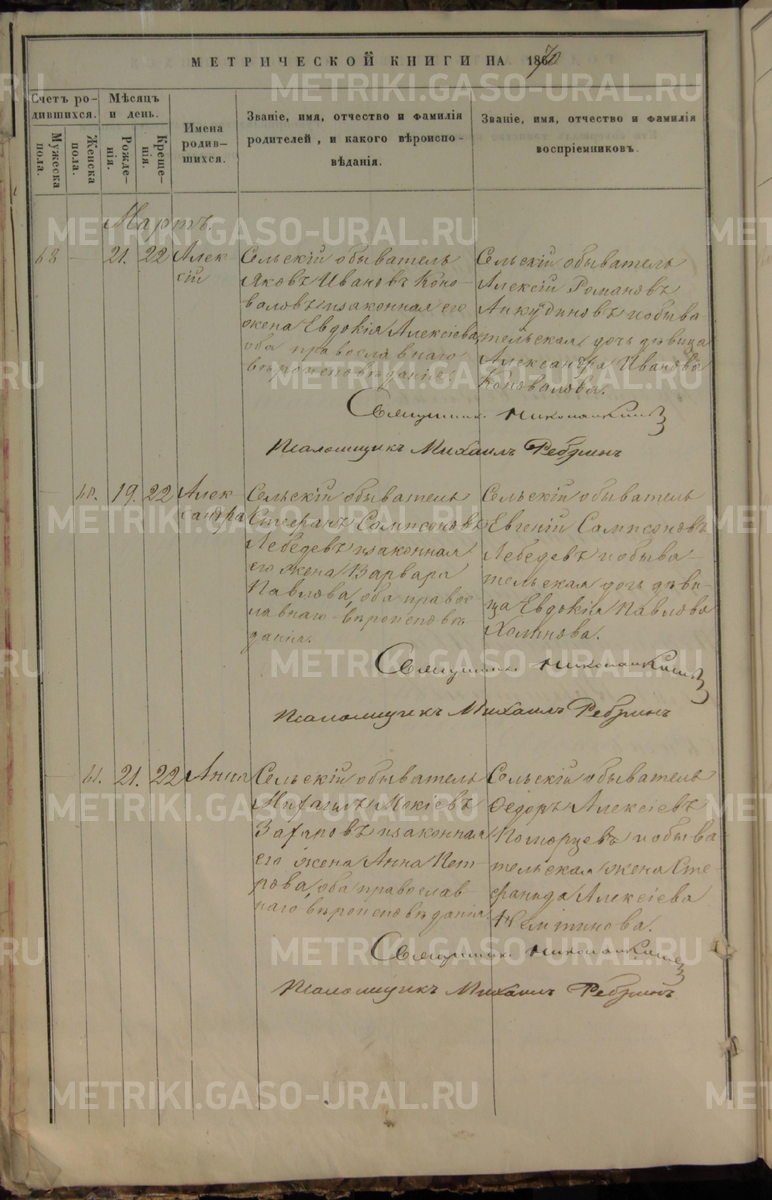 МЕТРИЧЕСКОЙ КНИГИ НА 1870
Счетъ родившихся.
Мужеска пола.
Женска пола.
Мѣсяцъ и день.
Рожденія.
Крещенія.
Имена родившихся.
Званіе, имя, отчество и фамилія
родителей, и какого вѣроиспо-
вѣданія.
Званіе, имя, отчество и фамилія
воспріемниковъ.
Мартъ.
68 21. 22 Алек-
сій
Сельскій обыватель
Яковъ Ивановъ Коно-
валовъ и законная его
жена Евдокія Алексіева
оба православнаго
вѣроисповѣданія.
Сельскій обыватель
Алексій Романовъ
Анкудиновъ и обыва
тельская дочь дѣвица
Александра Иванова
Коновалова.
Священникъ
Псаломщикъ Михаилъ Ребринъ
60. 19. 22 Алек-
сандра
Сельскій обыватель
Стефанъ Сампсоновъ
Лебедевъ и законная
его жена Варвара
Павлова, оба правос-
лавнаго вѣроисповѣ
данія.
Сельскій обыватель
Евгеній Сампсоновъ
Лебедевъ и обыва
тельская дочь дѣви-
ца Евдокія Павлова
Священникъ
Псаломщикъ Михаилъ Ребринъ
61. 21. 22 Анна
Сельскій обыватель
Михаилъ Мокіевъ
Захаровъ и законная
его жена Анна Пет-
рова, оба православ
наго вѣроисповѣданія
Сельскій обыватель
Ѳедоръ Алексіевъ
Поморцевъ и обыва
тельская жена Сте
фанида Алексіева
Священникъ
Псаломщикъ Михаилъ Ребринъ
METRIKI.GASO-URAL.RU